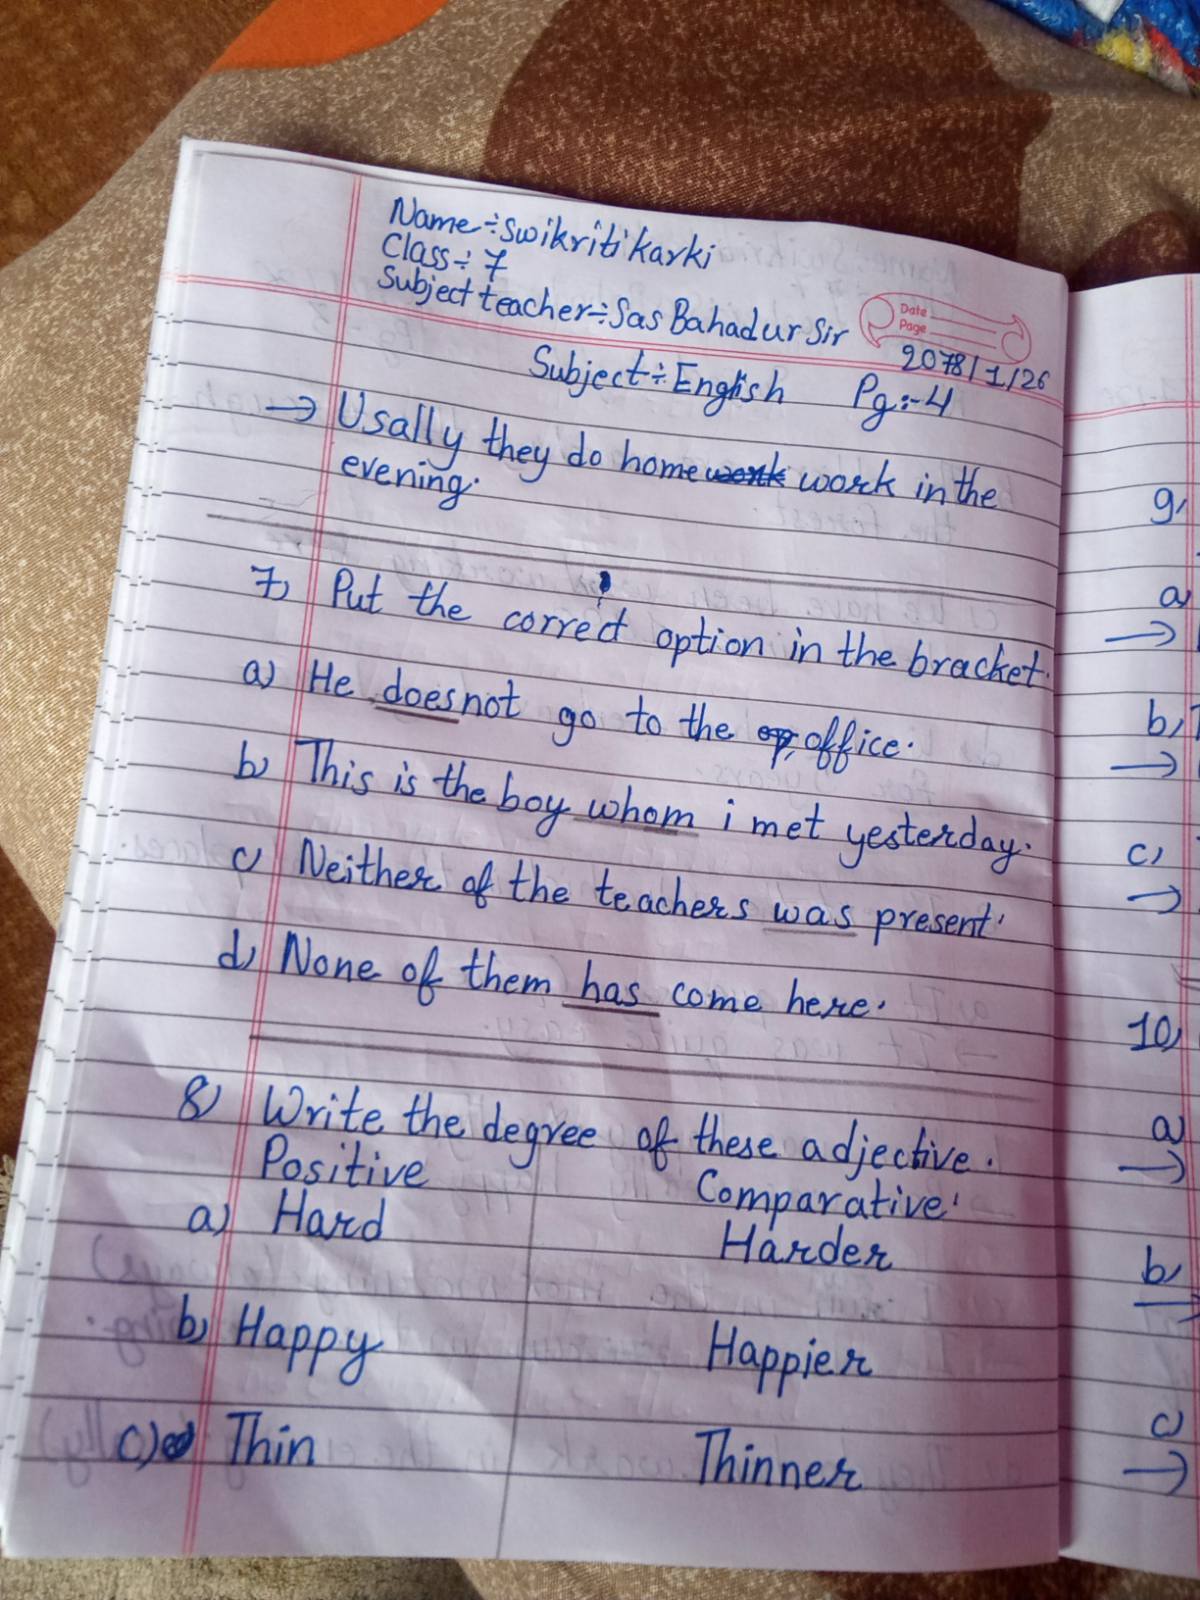 Name÷Swikriti Karki
Class÷7
Subject teacher÷Sas Bahadur Sir
Date
Page
2078/1/26
Subject÷English Pg:-4
→ Usally they do home work in the
evening.
7) Put the correct option in the bracket.
a) He does not go to the office.
b) This is the boy whom i met yesterday.
c) Neither of the teachers was present.
d) None of them has come here.
8) Write the degree of these adjective.
Positive Comparative.
a) Hard Harder
b) Happy Happier
c) Thin Thinner
9,
a)
→
b)
→
c)
→
10)
a)
→
b)
→
c)
→